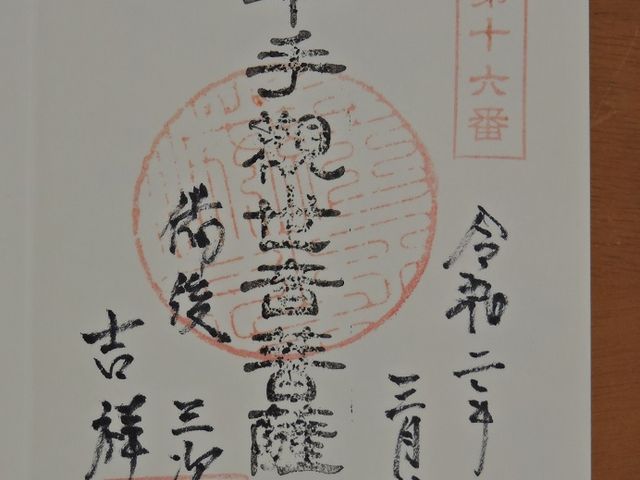 第十六番
令和二年
三月
千手觀世音菩薩
備後 三次
吉祥